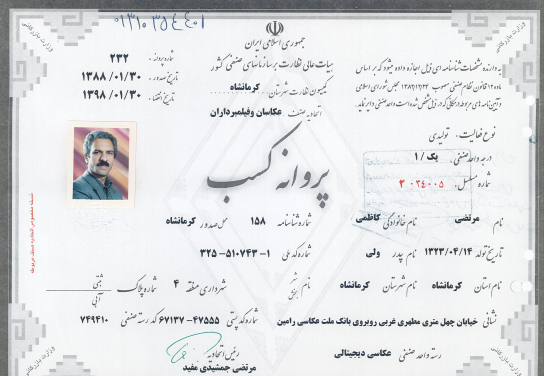 ۰۱۳۱۰۳۵۴۴۰۱
جمهوری اسلامی ایران
هیات عالی نظارت بر سازمانهای صنفی کشور
کمیسیون نظارت شهرستان: کرمانشاه
اتحادیه صنف عکاسان و فیلمبرداران
شماره پروانه: ۲۳۲
تاریخ صدور: ۱۳۸۸/۰۱/۳۰
تاریخ انقضا: ۱۳۹۸/۰۱/۳۰
به دارنده مشخصات شناسنامه ای ذیل اجازه داده میشود که بر اساس
ماده ۱۲ قانون نظام صنفی مصوب ۱۳۸۲/۱۲/۲۴ مجلس شورای اسلامی
و آئین نامه های مربوطه در محلی که در ذیل مشخص شده است واحد صنفی دایر نماید.
نوع فعالیت: تولیدی
درجه واحد صنفی: یک/۱
شماره مسلسل: ۲۰۲۴۰۰۵
پروانه کسب
نام مرتضی نام خانوادگی کاظمی شماره شناسنامه ۱۵۸ محل صدور کرمانشاه
تاریخ تولد ۱۳۲۳/۰۴/۱۴ نام پدر ولی شماره کد ملی ۱-۵۱۰۷۴۳-۳۲۵
نام استان کرمانشاه نام شهرستان کرمانشاه نام شهر بخش شهرداری منطقه ۴ شماره پلاک ثبتی آبی
نشانی خیابان چهل متری مطهری غربی روبروی بانک ملت عکاسی رامین شماره کد پستی ۴۷۵۵۵-۶۷۱۳۷ کد رسته صنفی ۷۴۹۴۱۰
رسته واحد صنفی عکاسی دیجیتالی
رئیس اتحادیه
مرتضی جمشیدی مفید
نسخه مخصوص اتحادیه صنف مربوطه
وزارت بازرگانی
وزارت بازرگانی
وزارت بازرگانی
وزارت بازرگانی